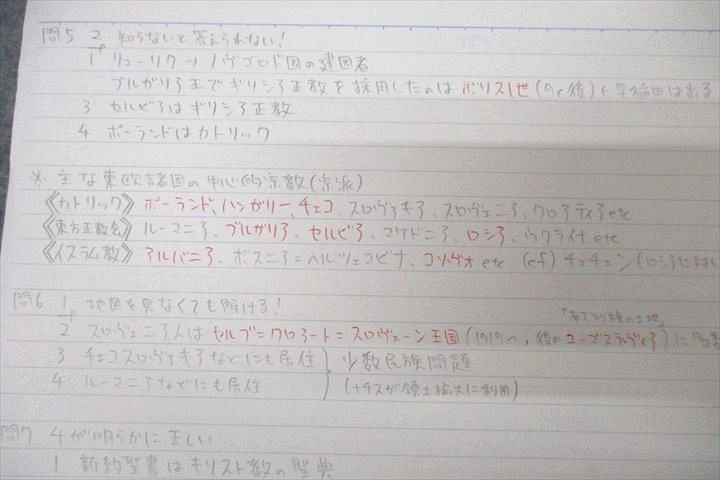 問5 2 知らないと答えられない!
1 リューリク→ノヴゴロド国の建国者
ブルガリア王でギリシア正教を採用したのは ボリス1世 (9c後) ← 早稲田は出る
3 セルビアはギリシア正教
4 ポーランドはカトリック
※ 主な東欧諸国の中心的宗教(宗派)
《カトリック》 ポーランド、ハンガリー、チェコ、スロヴァキア、スロヴェニア、クロアティア etc
《東方正教会》 ルーマニア、ブルガリア、セルビア、マケドニア、ロシア、ウクライナ etc
《イスラム教》 アルバニア、ボスニア=ヘルツェゴビナ、コソヴォ etc (cf) チェチェン(ロシア
問6 1 地図を見なくても解ける!
「南スラヴ族の土地」
2 スロヴェニア人は セルブ=クロアート=スロヴェーン王国 (1919へ、後の ユーゴスラヴィア) に
3 チェコスロヴァキアなどにも居住 } 少数民族問題
4 ルーマニアなどにも居住 (ナチスが領土拡大に利用)
問7 4が明らかに正しい
1 新約聖書はキリスト教の聖典